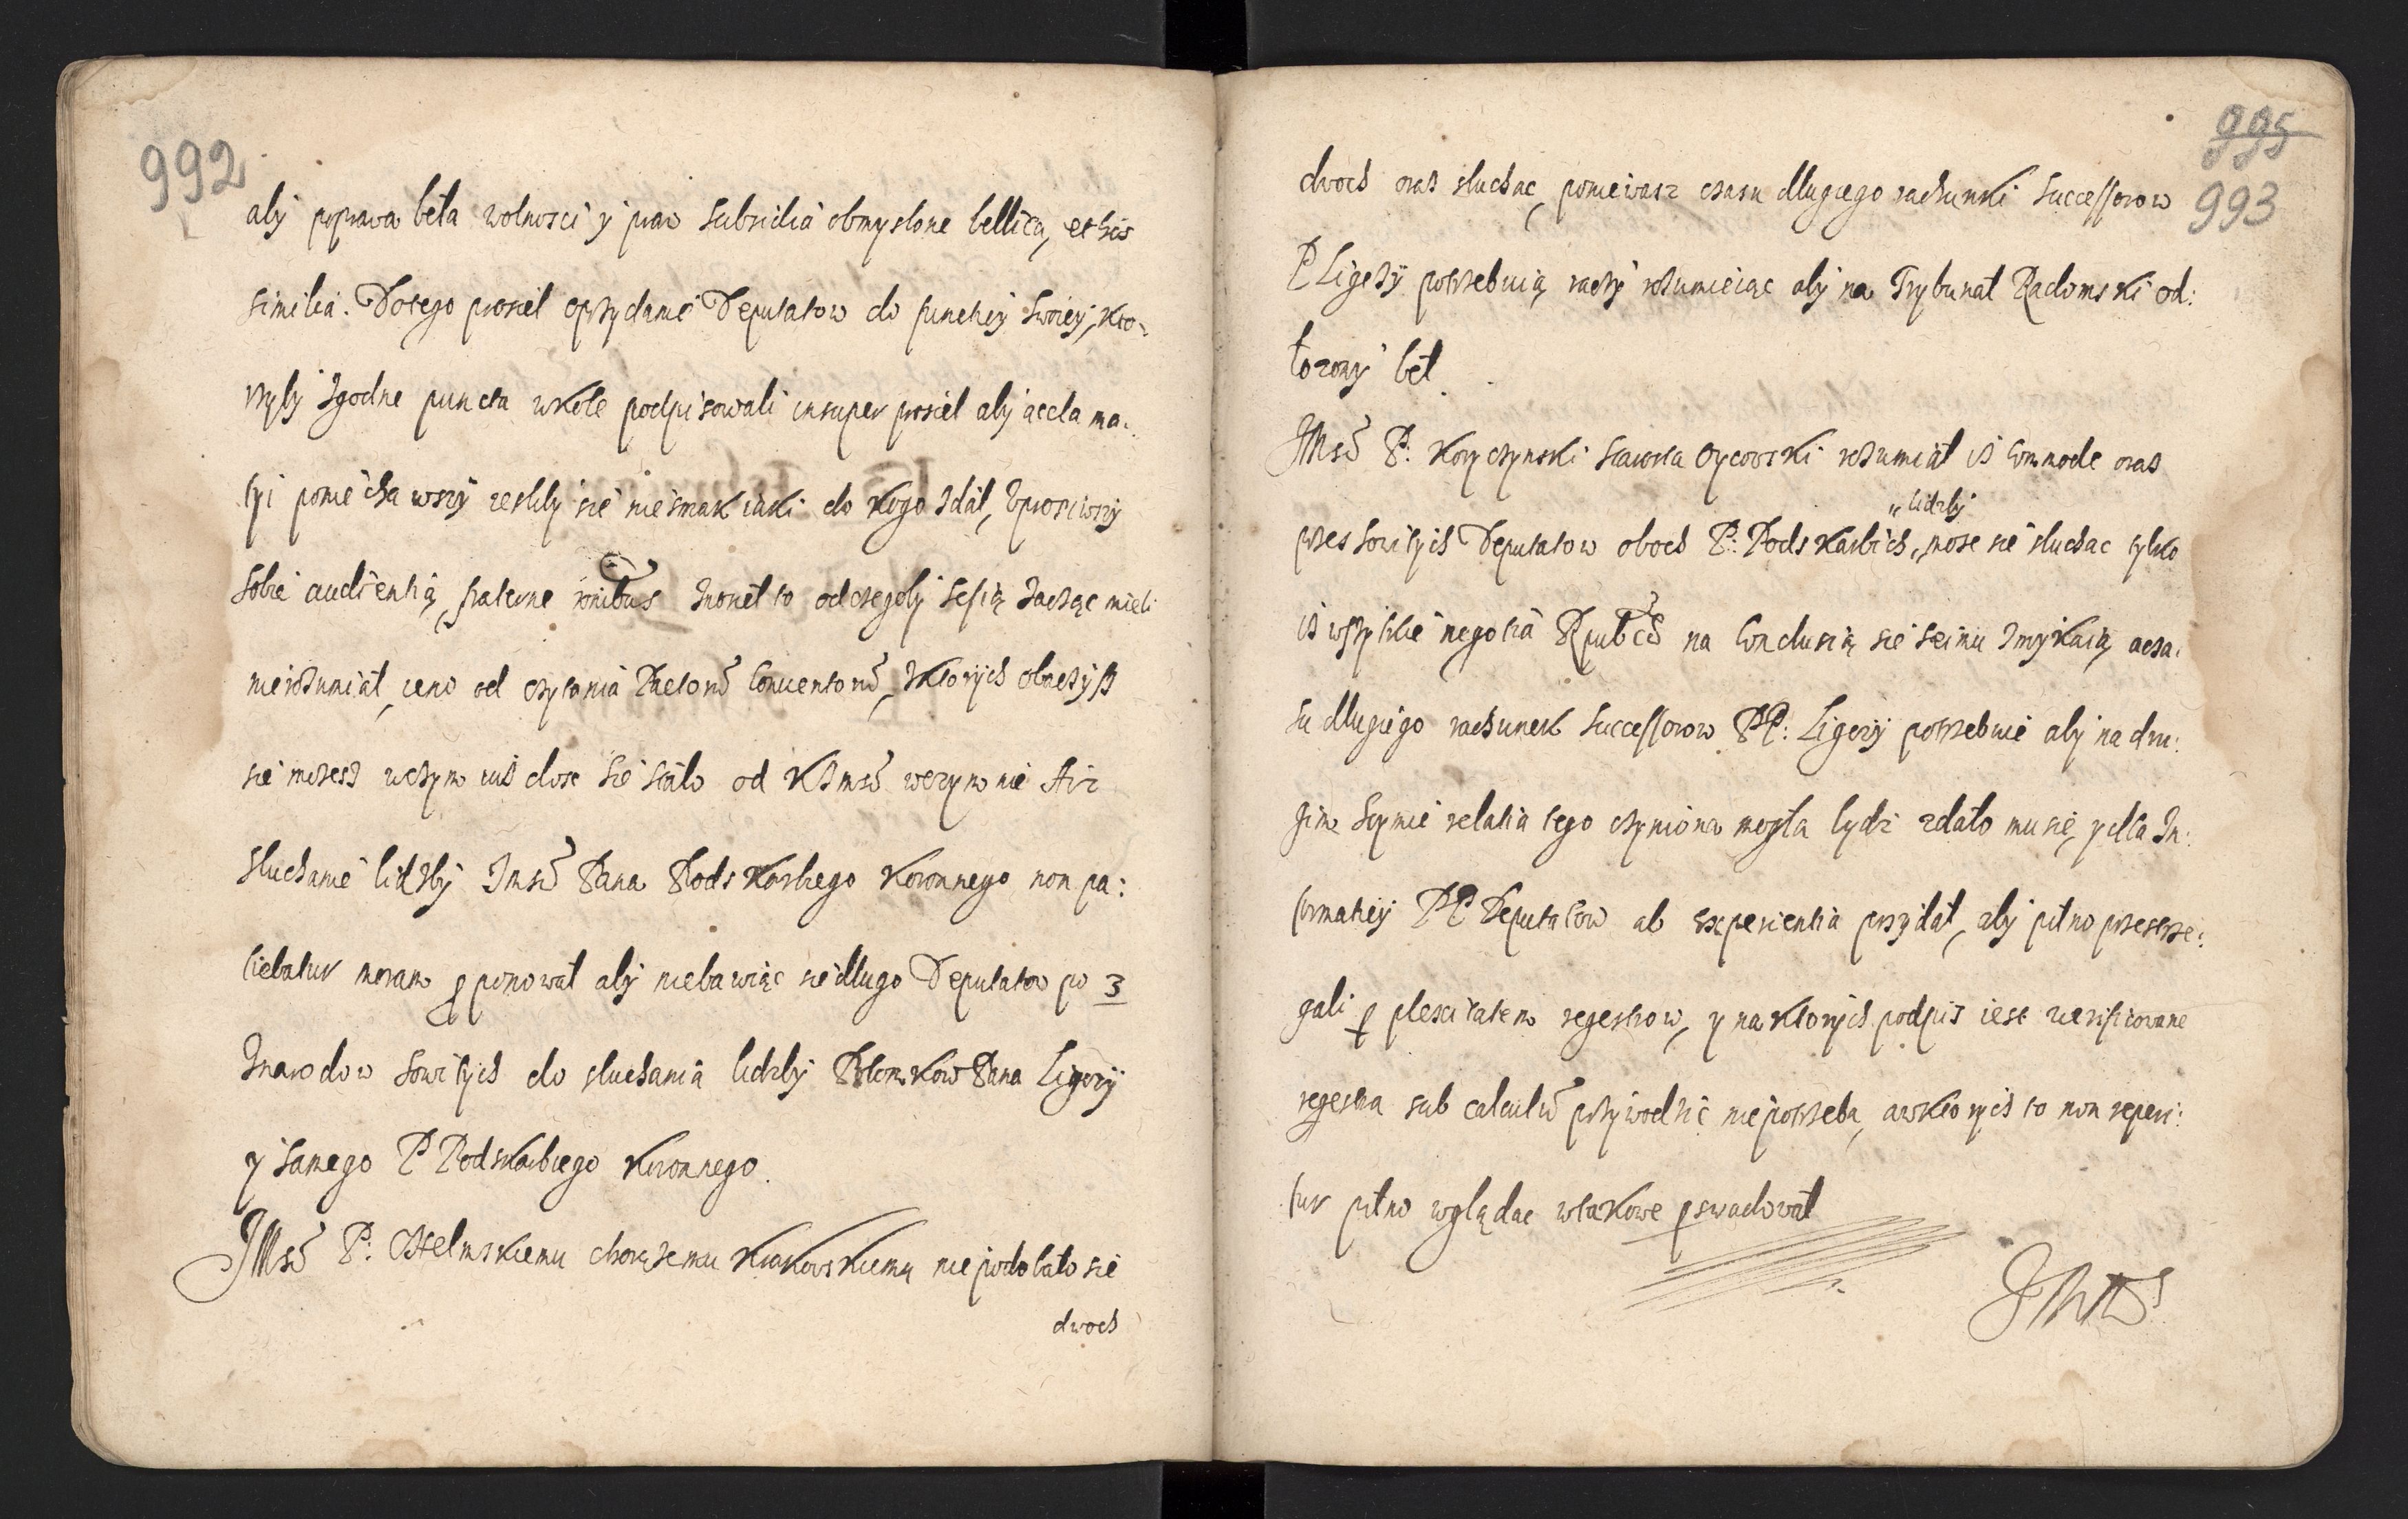 992
aby poprawa beła wolnosci y praw subsidia obmyslone bellica, et his
similia. Dotego prosieł oprzydanie Deputatow do functiey swoiey, kto-
rzyby zgodne puncta wkole podpisowali insuper prosieł aby accla ma-
tyi poniecha wszy iesliby się niesmak iaki do kogo zdał, uprosiwszy
sobie audientią, fraterne omibus
nierozumiał, ieno od czytania Pactorũ Conuentorũ, zktorych obaczysz
się mozesz wczym iuż dosc się stało od KJMsci wczym nie Asz
słuchanie liczby JMsci Pana Podskarbiego Koronnego non pa:
tiebatur moram pponował aby niebawiąc się długo Deputatow po 3
Znarodow sowitych do słuchania liczby Potomkow Pana Ligęzy
y samego P Podskarbiego Koronnego.
JMsci P: Chełmskiemu chorązemu Krakowskiemu niepodobało się
dwoch
995
993
dwoch oraz słuchac, poniewasz czasu długiego rachunki Successorow
P Ligęzy potrzebuią raczy rozumieiąc aby na Trybunał Radomski od:
łozony beł
JMsci P: Koryczynski Starosta Oycowski rozumiał iż Commode oraz
przes sowitych Deputatow oboch P: Podskarbich, moze się słuchac tylko
" liczby
iż wszytkie negotia Rpubcę na Conclusią się seimu zmykaią, acza:
su długiego rachunek Successorow PP: Ligęzy potrzebuie aby na dru:
gim Seymie relatia tego czyniona mogła bydz zdało mu się, y dla In:
formatiey PP Deputatow ab experientia przydał, aby pilno przestrze:
gali p regestrow, y na ktorych podpis iest uerificowane
regestra sub calculũ przywodzic niepotrzeba, awktorych to non reperi:
tur pilno wglądac wtakowe pswadował
JMś